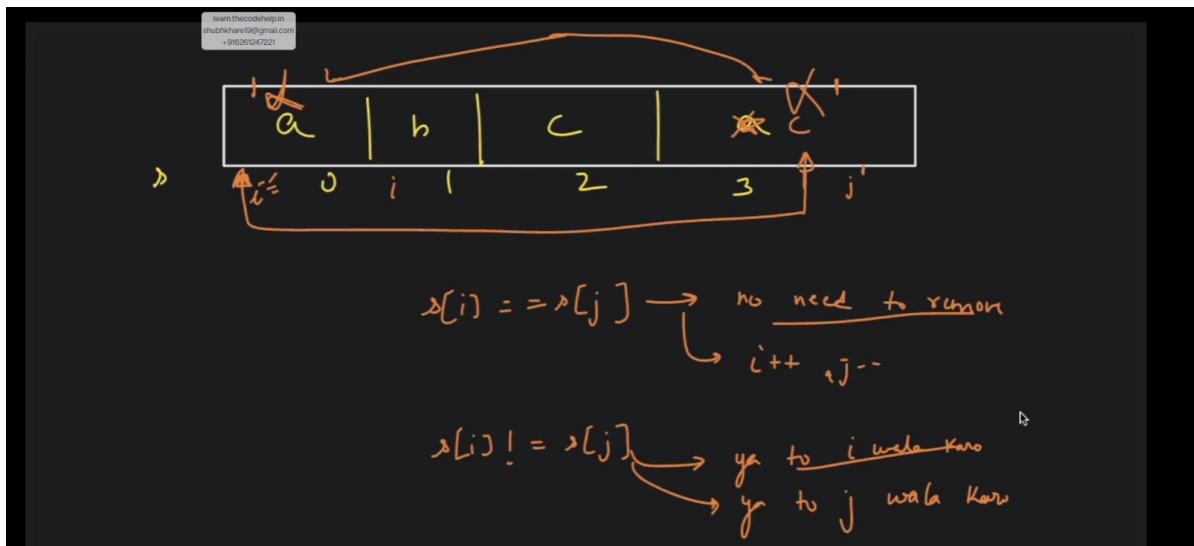 learn.thecodehelp.in
shubhkhare19@gmail.com
+916261247221
a b c a c
s i 0 i 1 2 3 j
s[i] == s[j] → no need to remove
i++ , j--
s[i] != s[j] → ya to i wala karo
ya to j wala karo